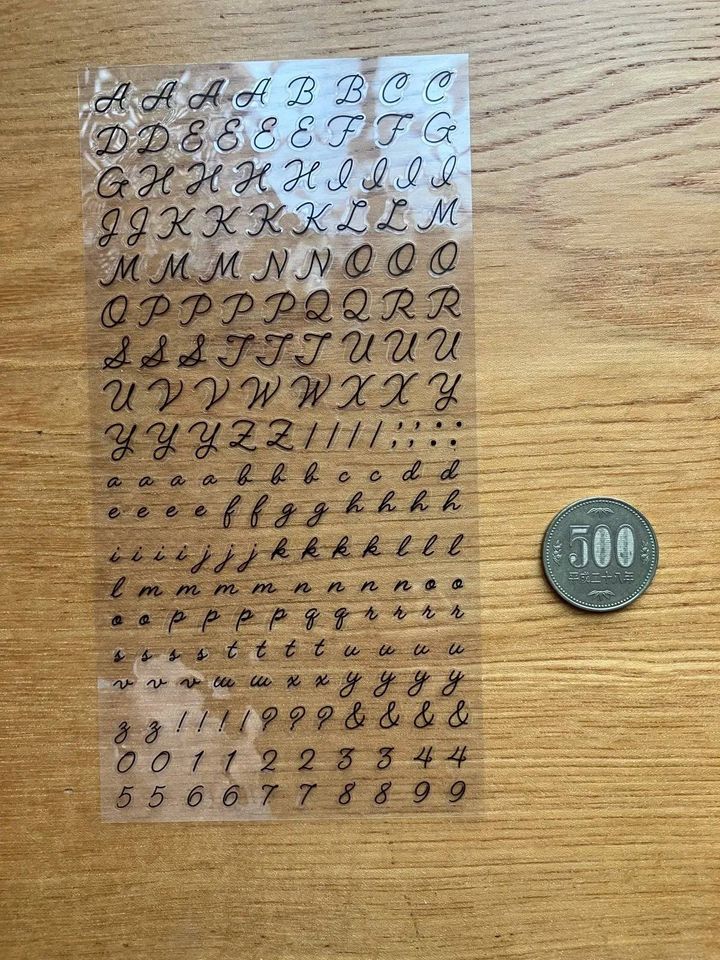 A A A A B B C C
D D E E E E F F G
G H H H H I I I I
J J K K K K L L M
M M M N N O O O
O P P P P Q Q R R
S S S T T T U U U
U V V W W X X Y
Y Y Y Z Z / / / / ; ; : :
a a a a b b b c c d d
e e e e f f g g h h h h
i i i i j j j k k k k l l l
l m m m m n n n n o o
o o p p p p q q r r r r
s s s s t t t t u u u u
v v v w w x x y y y y
z z ! ! ! ! ? ? ? & & & &
0 0 1 1 2 2 3 3 4 4
5 5 6 6 7 7 8 8 9 9
500
平成二十八年